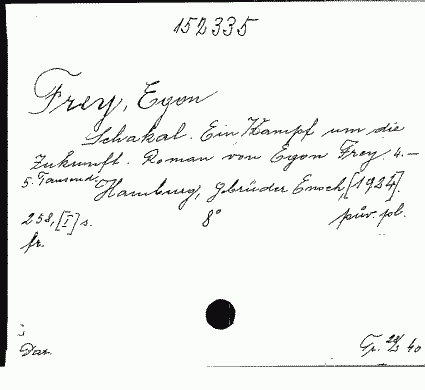 152335
Frey, Egon
Schakal. Ein Kampf um die
Zukunft. Roman von Egon Frey. 4.—
5. Tausend. Hamburg, Gebrüder Enoch, [1924].
258, [I] s. 8° pův. pl.
fr.
Dar.
40